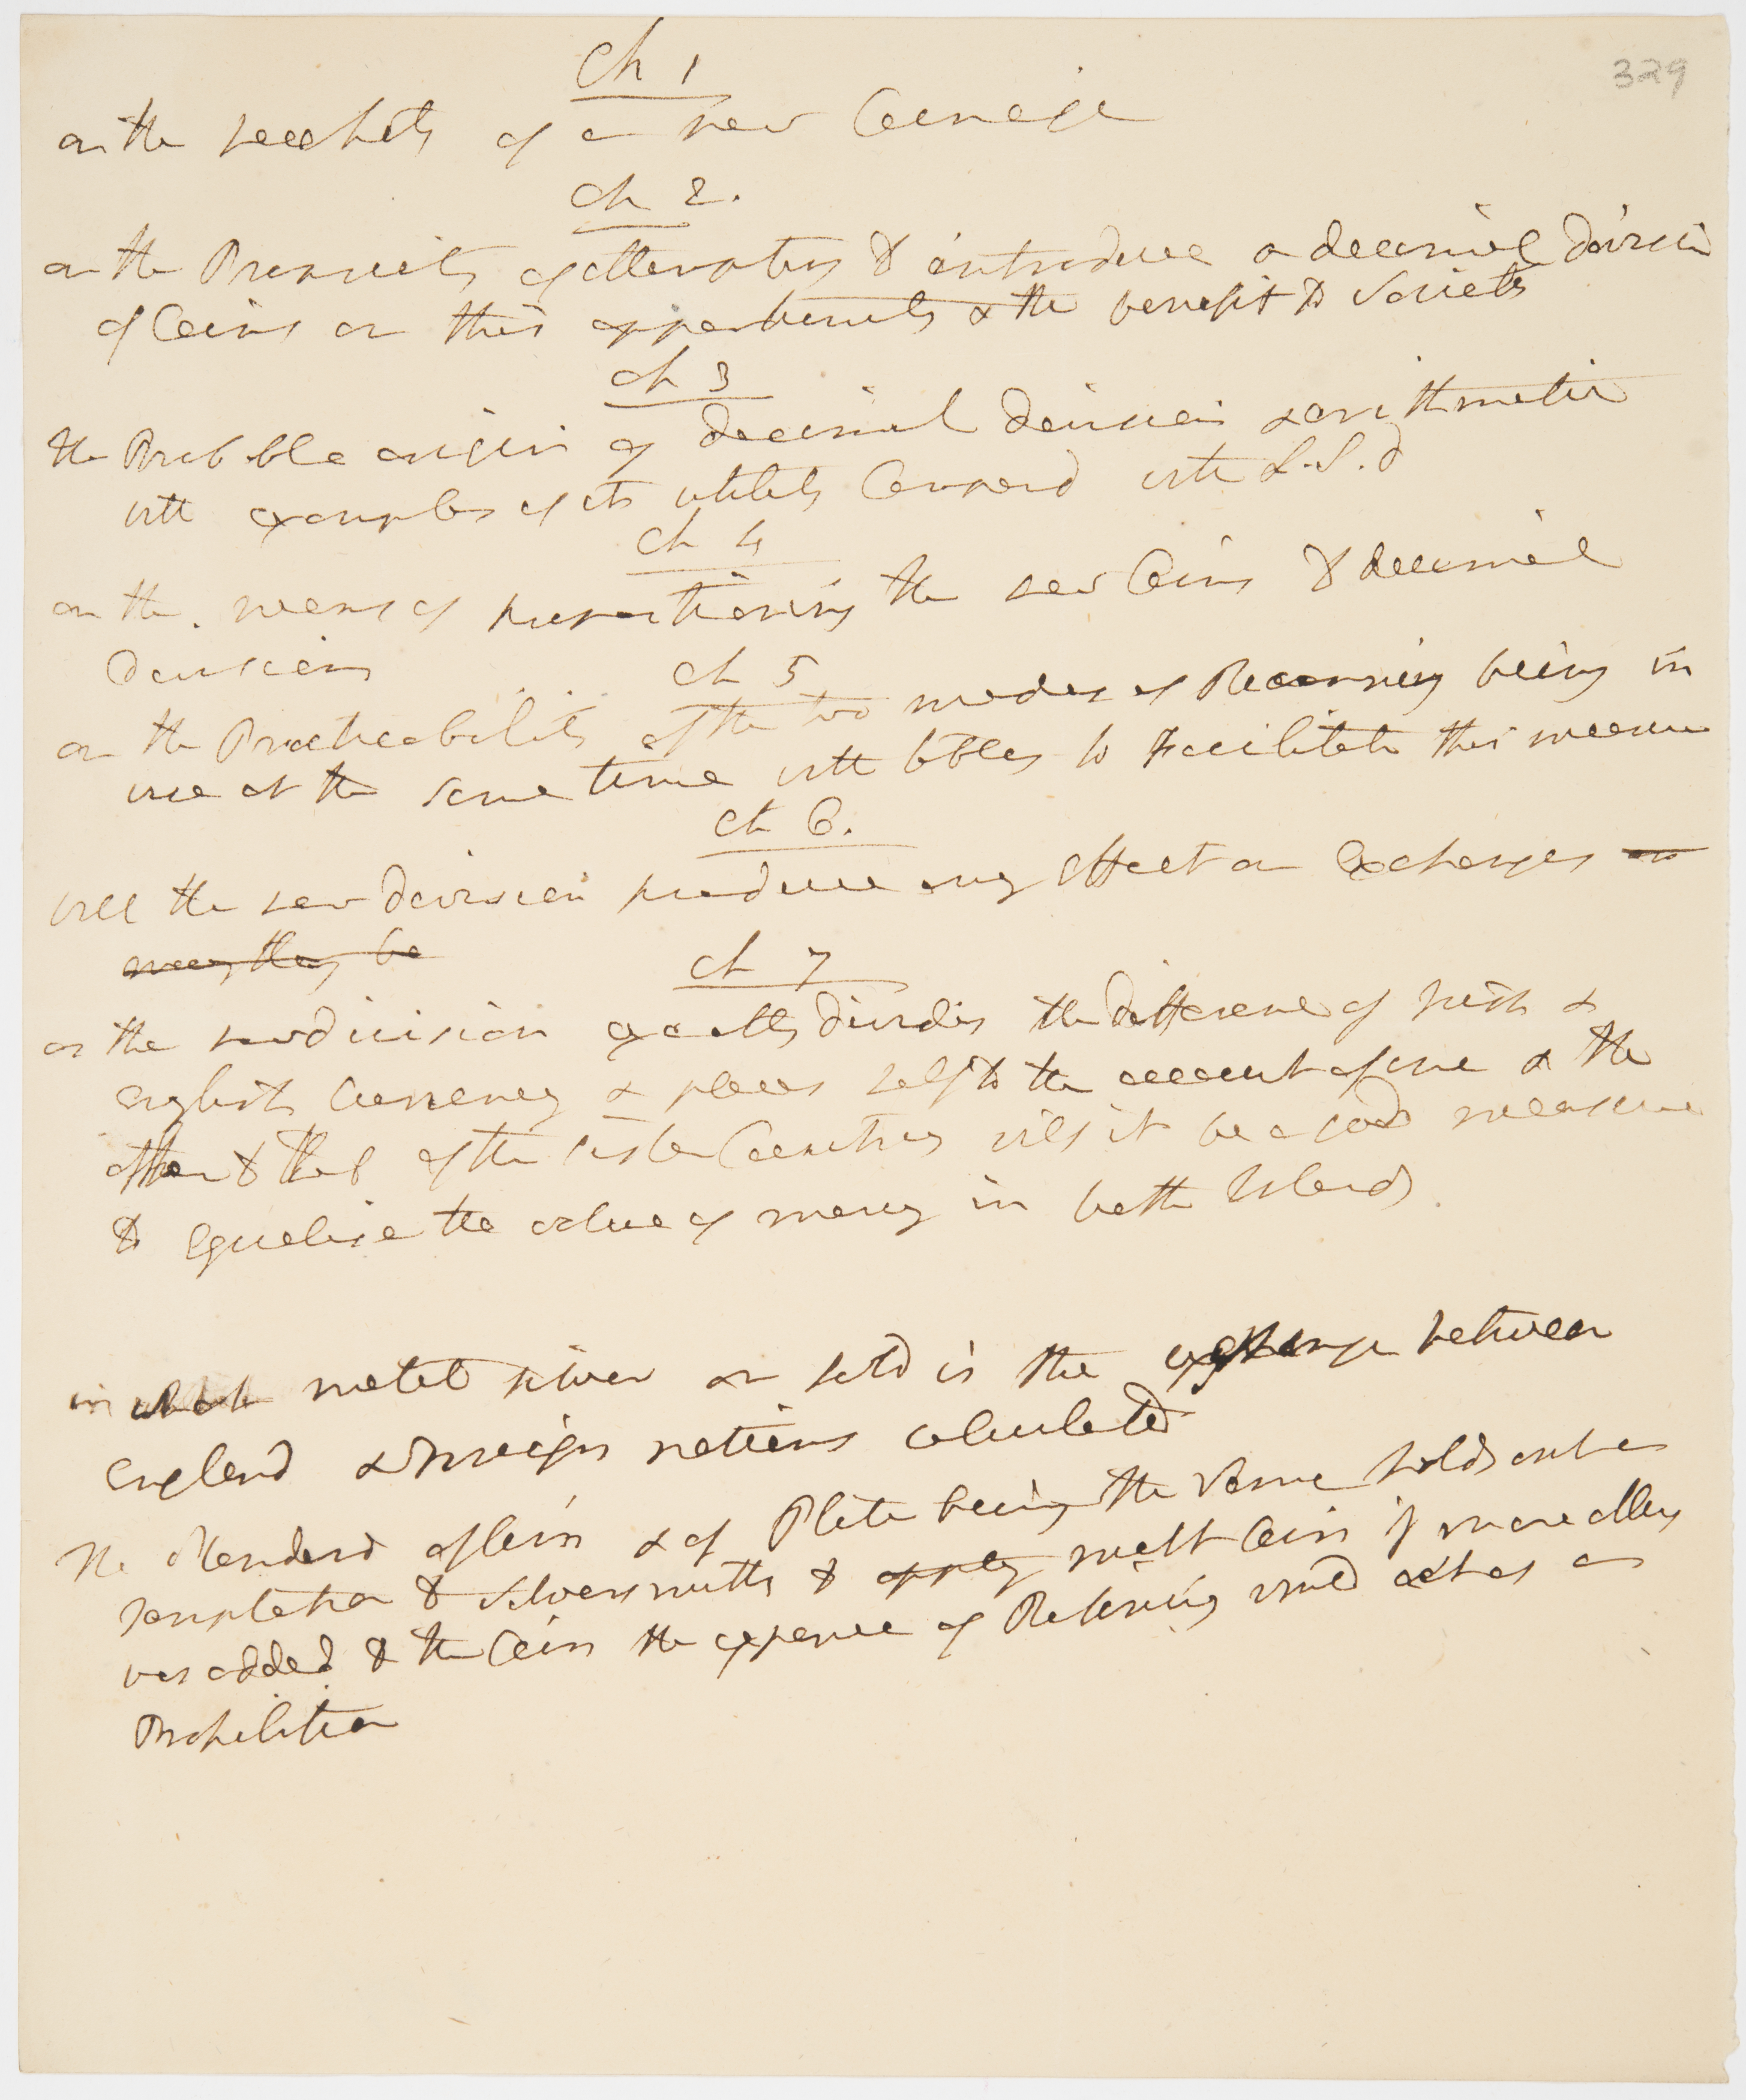 329
Ch 1
on the necessity of a new Coinage
Ch 2.
on the Propriety of attempting to introduce a decimal division
of Coins on this opportunity & the benefit to Society
Ch 3
the Probable origin of decimal division & arithmetic
with examples of its utility Compared with L.S.d
Ch 4
on the means of proportioning the new Coins to decimal
Division
Ch 5
on the Practicability of the two modes of Reconning being in
use at the same time with tables to Facilitate this measure
Ch 6.
will the new division produce any effect on Exchanges or
may they be
Ch 7
as the new division exactly divides the difference of Irish &
English Currency & places half to the account of one & the
other to that of the sister Countrey will it be a good measure
to Equalise the value of money in both Islands
in which metal silver or gold is the exchange between
England & Foreign nations calculated
The Standard of Coin & of Plate being the same holds out a
Temptation to silversmiths to apply melt Coin if more alloy
was added to the Coin the expence of Refining would act as a
Prohibition